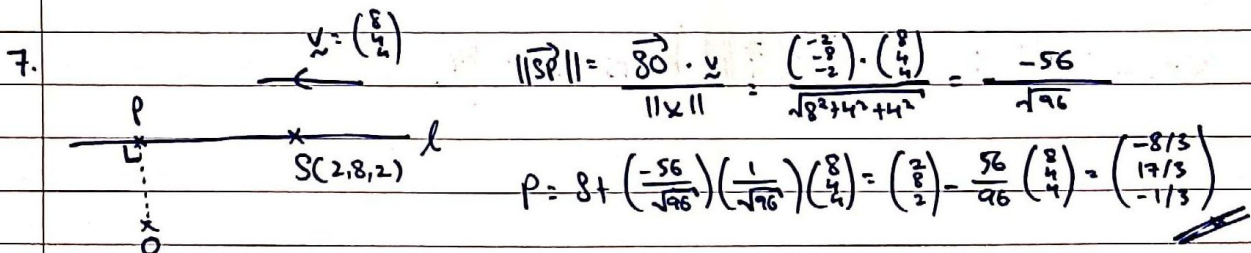 7.
v = (8 4 4)
P
S(2,8,2)
l
O
||SP|| = SO · v / ||v|| = (-2 -8 -2) · (8 4 4) / √8²+4²+4² = -56 / √96
P = S + (-56/√96)(1/√96)(8 4 4) = (2 8 2) - 56/96 (8 4 4) = (-8/3 17/3 -1/3)